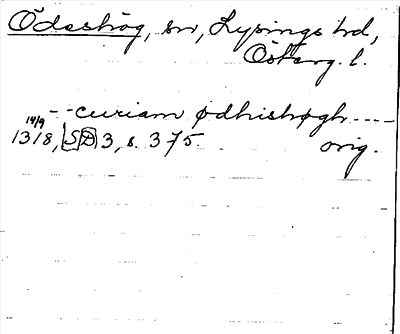 Ödeshög, sn, Lysings hd,
Österg. l.
- - curiam ødhishøgh - - - -
14/9
1318, SD 3, s. 375. orig.